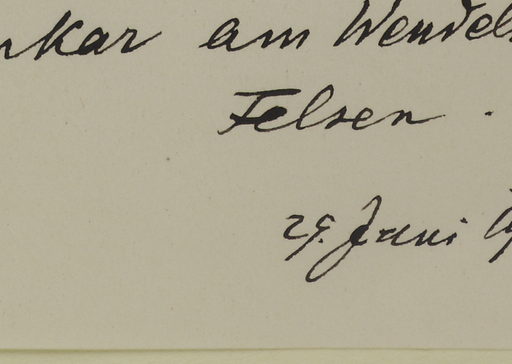 nkar am Wendels
Felsen.
29. Juni 19